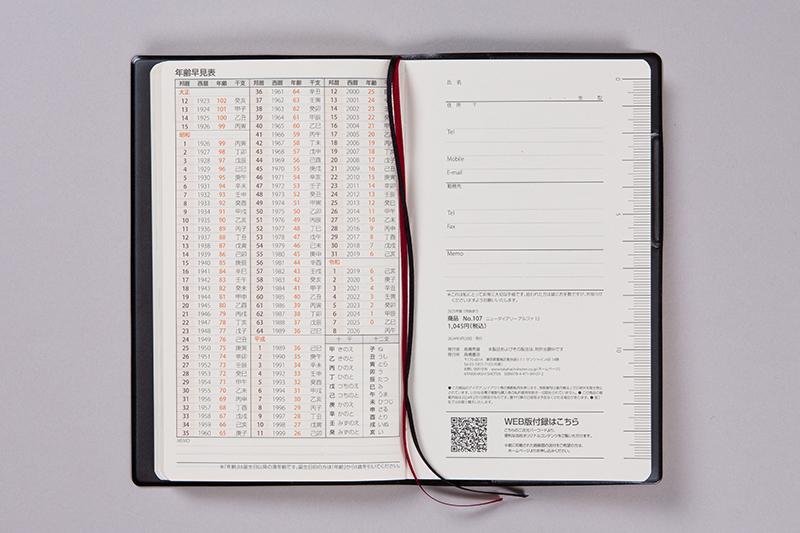 年齢早見表
邦暦 西暦 年齢 干支
大正
12 1923 102 癸亥
13 1924 101 甲子
14 1925 100 乙丑
15 1926 99 丙寅
昭和
1 1926 99 丙寅
2 1927 98 丁卯
3 1928 97 戊辰
4 1929 96 己巳
5 1930 95 庚午
6 1931 94 辛未
7 1932 93 壬申
8 1933 92 癸酉
9 1934 91 甲戌
10 1935 90 乙亥
11 1936 89 丙子
12 1937 88 丁丑
13 1938 87 戊寅
14 1939 86 己卯
15 1940 85 庚辰
16 1941 84 辛巳
17 1942 83 壬午
18 1943 82 癸未
19 1944 81 甲申
20 1945 80 乙酉
21 1946 79 丙戌
22 1947 78 丁亥
23 1948 77 戊子
24 1949 76 己丑
25 1950 75 庚寅
26 1951 74 辛卯
27 1952 73 壬辰
28 1953 72 癸巳
29 1954 71 甲午
30 1955 70 乙未
31 1956 69 丙申
32 1957 68 丁酉
33 1958 67 戊戌
34 1959 66 己亥
35 1960 65 庚子
邦暦 西暦 年齢 干支
36 1961 64 辛丑
37 1962 63 壬寅
38 1963 62 癸卯
39 1964 61 甲辰
40 1965 60 乙巳
41 1966 59 丙午
42 1967 58 丁未
43 1968 57 戊申
44 1969 56 己酉
45 1970 55 庚戌
46 1971 54 辛亥
47 1972 53 壬子
48 1973 52 癸丑
49 1974 51 甲寅
50 1975 50 乙卯
51 1976 49 丙辰
52 1977 48 丁巳
53 1978 47 戊午
54 1979 46 己未
55 1980 45 庚申
56 1981 44 辛酉
57 1982 43 壬戌
58 1983 42 癸亥
59 1984 41 甲子
60 1985 40 乙丑
61 1986 39 丙寅
62 1987 38 丁卯
63 1988 37 戊辰
64 1989 36 己巳
平成
1 1989 36 己巳
2 1990 35 庚午
3 1991 34 辛未
4 1992 33 壬申
5 1993 32 癸酉
6 1994 31 甲戌
7 1995 30 乙亥
8 1996 29 丙子
9 1997 28 丁丑
10 1998 27 戊寅
11 1999 26 己卯
邦暦 西暦 年齢
12 2000 25
13 2001 24
14 2002 23
15 2003 22
16 2004 21
17 2005 20
18 2006 19
19 2007 18
20 2008 17
21 2009 16
22 2010 15 庚寅
23 2011 14 辛卯
24 2012 13 壬辰
25 2013 12 癸巳
26 2014 11 甲午
27 2015 10 乙未
28 2016 9 丙申
29 2017 8 丁酉
30 2018 7 戊戌
31 2019 6 己亥
令和
1 2019 6 己亥
2 2020 5 庚子
3 2021 4 辛丑
4 2022 3 壬寅
5 2023 2 癸卯
6 2024 1 甲辰
7 2025 0 乙巳
8 2026 丙午
十干
甲 きのえ
乙 きのと
丙 ひのえ
丁 ひのと
戊 つちのえ
己 つちのと
庚 かのえ
辛 かのと
壬 みずのえ
癸 みずのと
十二支
子 ね
丑 うし
寅 とら
卯 う
辰 たつ
巳 み
午 うま
未 ひつじ
申 さる
酉 とり
戌 いぬ
亥 い
MEMO
※「年齢」は誕生日以降の満年齢です。誕生日前の方は「年齢」から1歳を引いてください。
氏 名
年 型
住 所 〒
Tel
Mobile
E-mail
勤務先
Tel
Fax
Memo
0
5
10
商品 No.107 ニューダイアリー アルファ 13
1,045円(税込)
WEB版付録はこちら